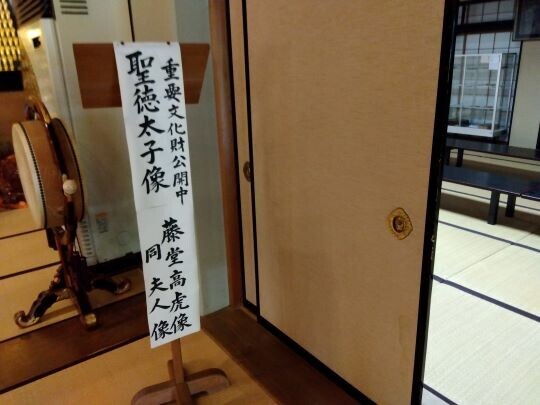 重要文化財公開中
聖徳太子像
藤堂高虎像
同夫人像